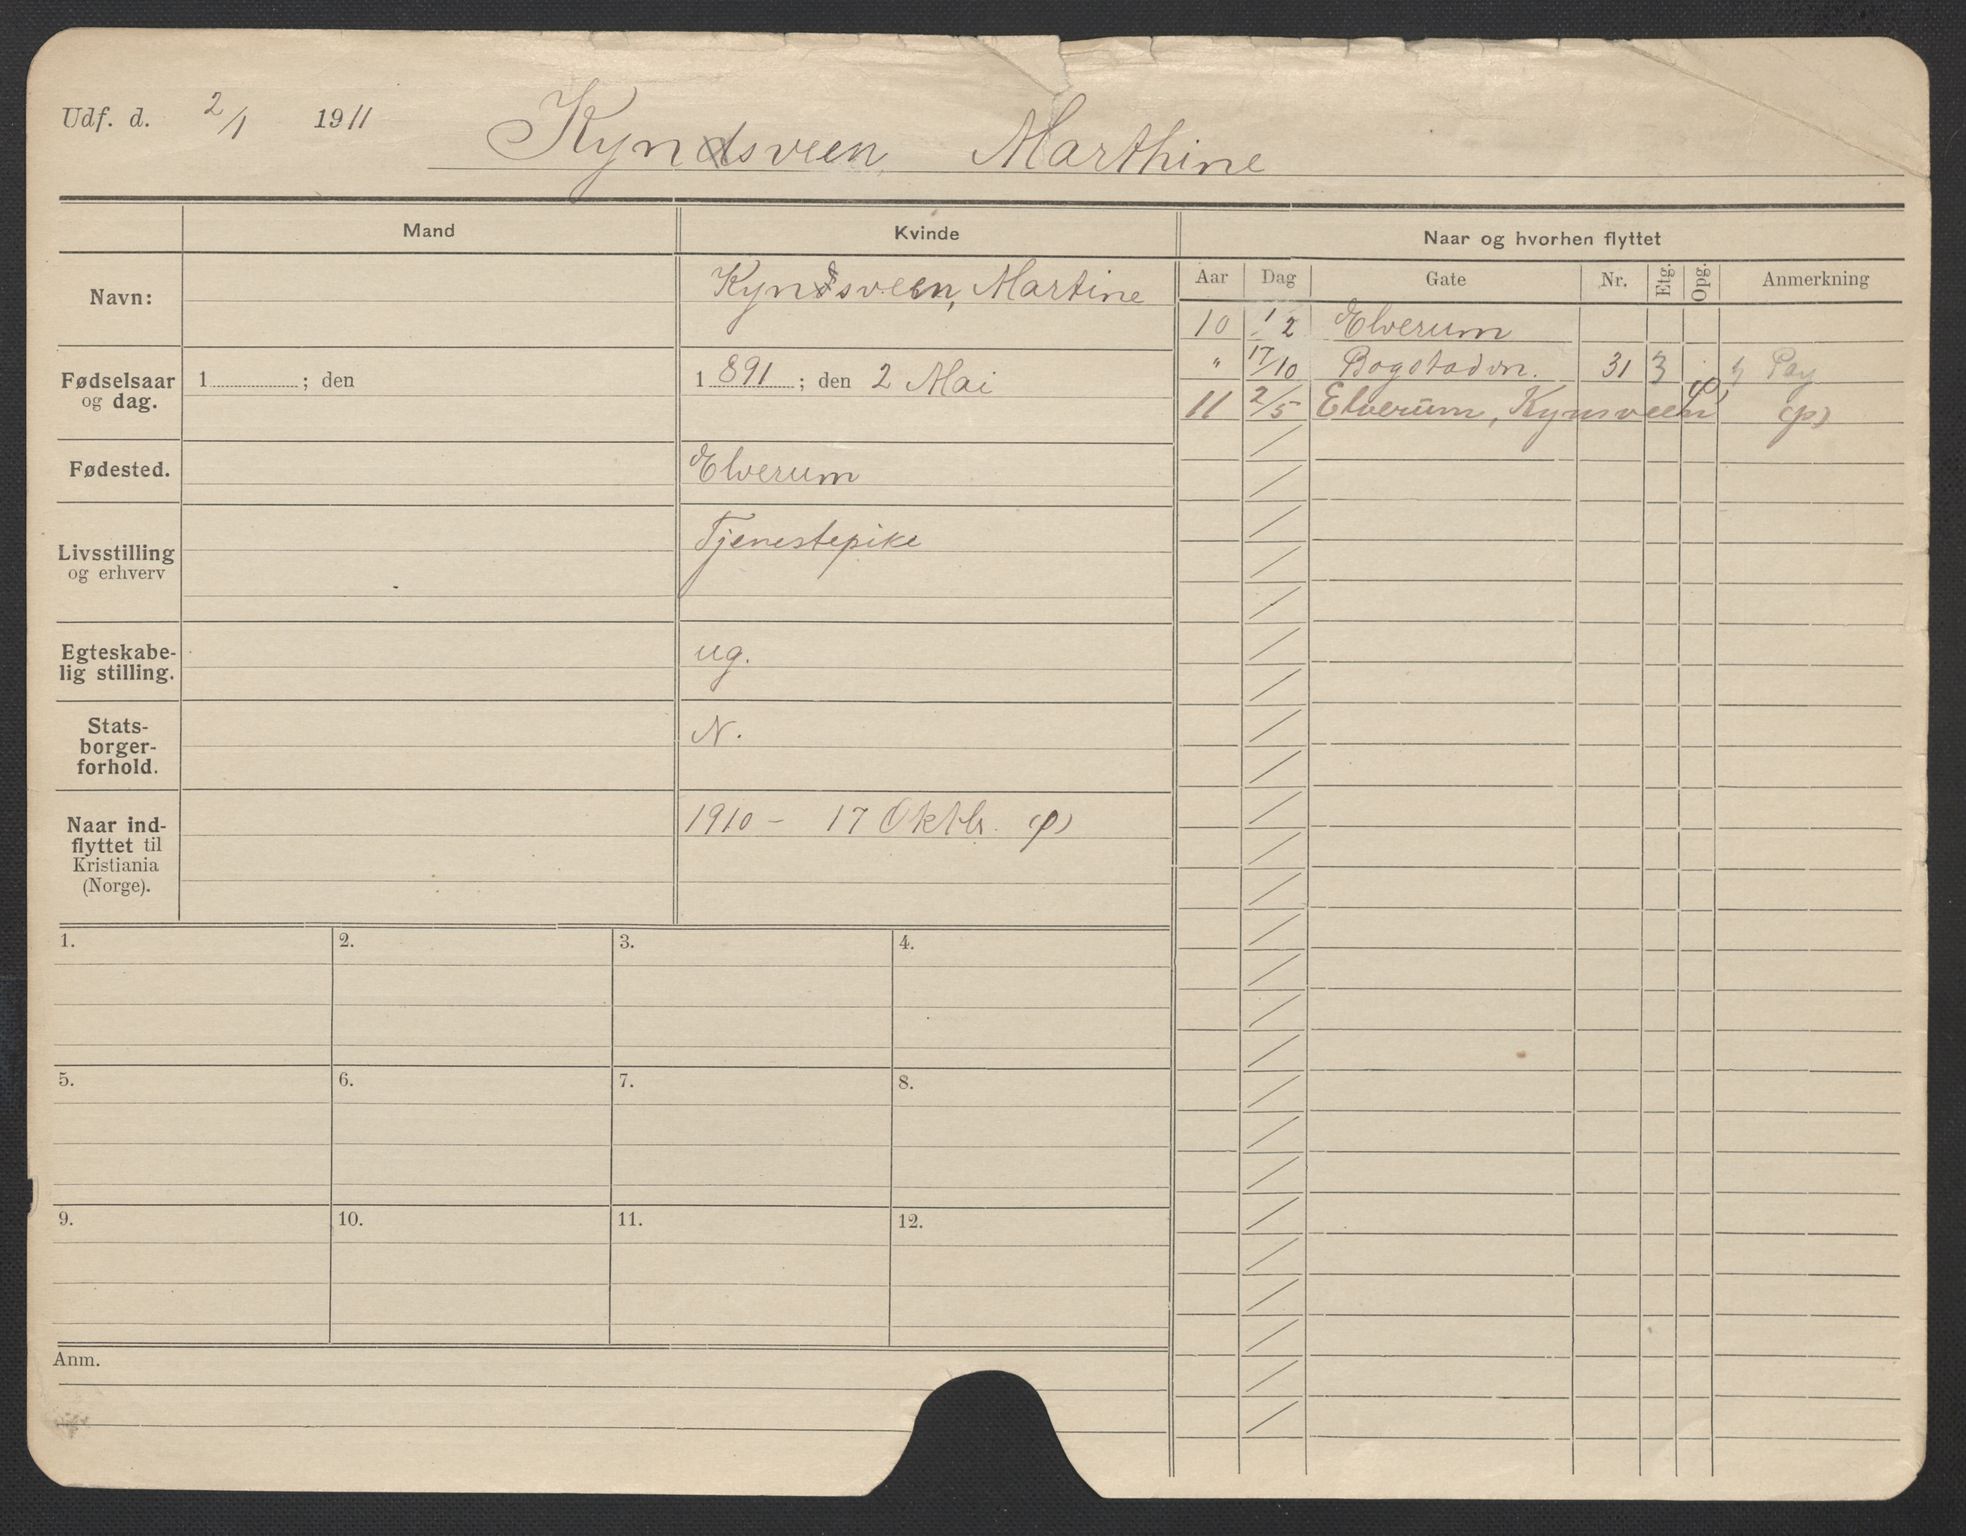 Udf. d. 2/1 1911
Kyndsveen, Marthine
Mand
Kvinde
Naar og hvorhen flyttet
Aar Dag Gate Nr. Etg. Opg. Anmerkning
Navn:
Kyndsveen, Martine
10 1/2 Elverum
" 17/10 Bogstadvn. 31 3
11 2/5 Elverum, Kynsveen (p)
Fødselsaar
og dag.
1 ; den
1891; den 2 Mai
Fødested.
Elverum
Livsstilling
og erhverv
Tjenestepike
Egteskabe-
lig stilling.
ug.
Stats-
borger-
forhold.
N.
Naar ind-
flyttet til
Kristiania
(Norge).
1910 - 17 Oktbr. (p)
1. 2. 3. 4.
5. 6. 7. 8.
9. 10. 11. 12.
Anm.